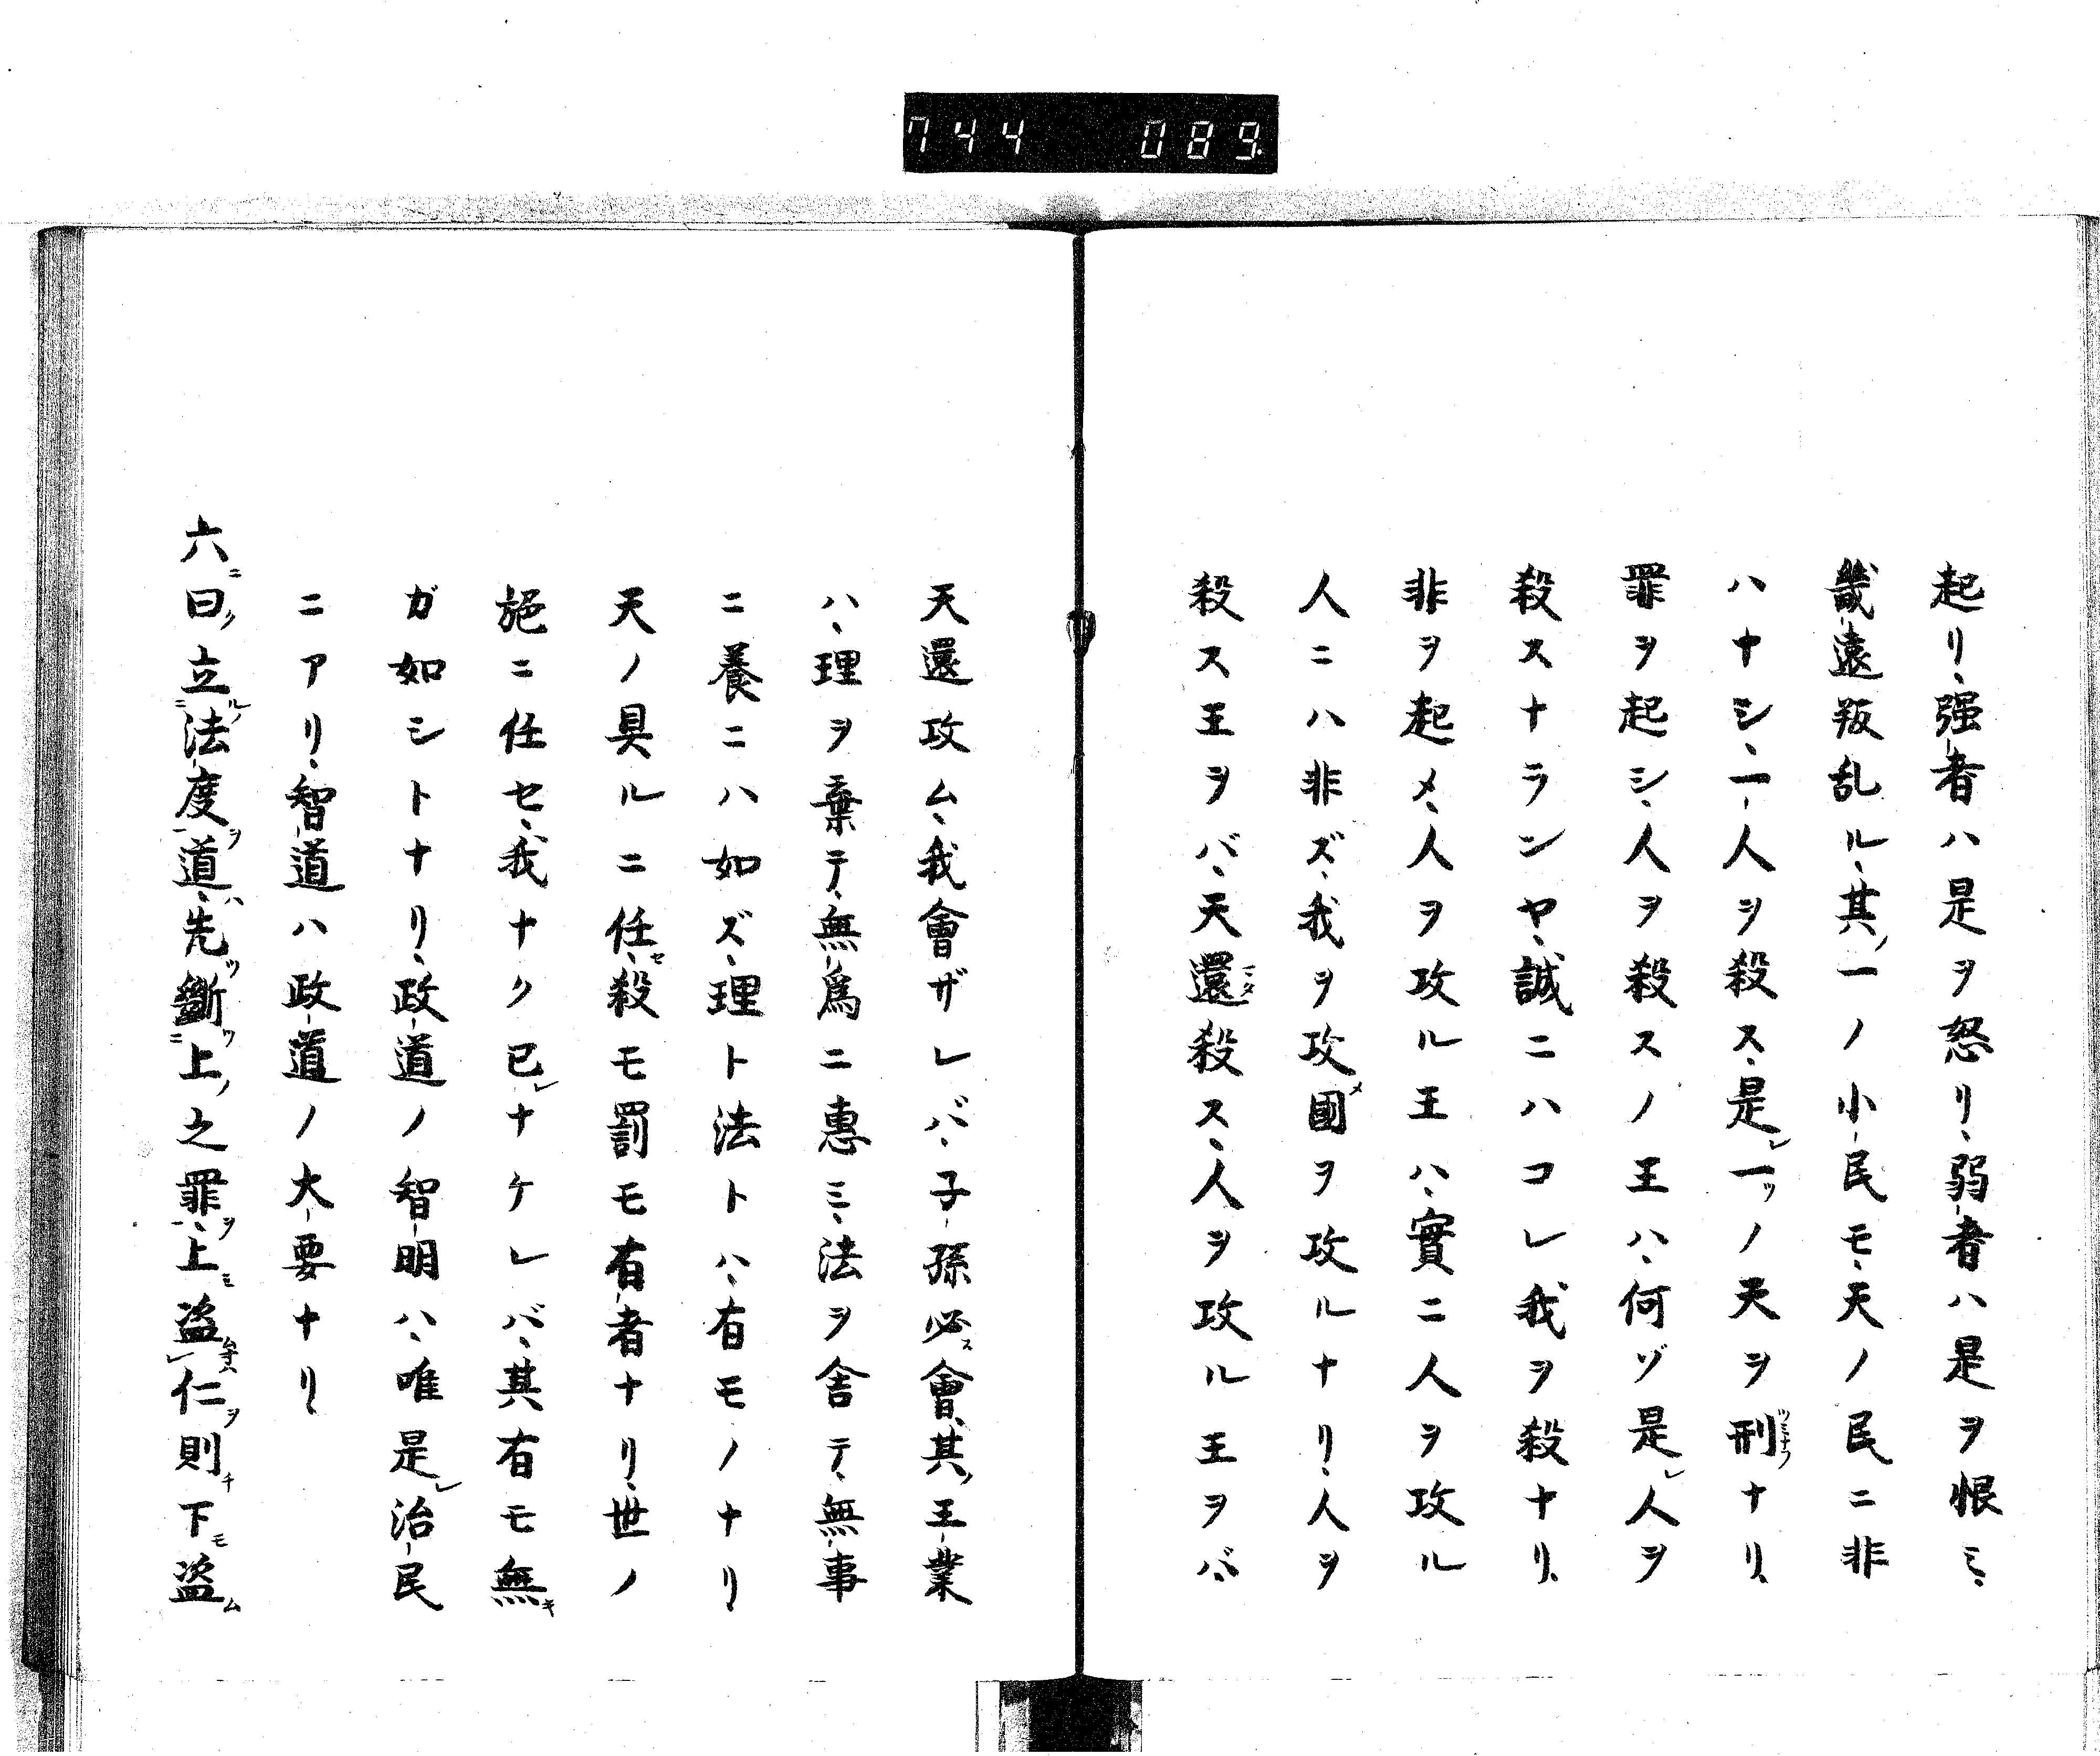 744 089
起リ、强者ハ是ヲ怒リ、弱者ハ是ヲ恨ミ、
畿遠叛乱ル、其ノ一ノ小民モ、天ノ民ニ非
ハナシ、一人ヲ殺ス、是レ一ツノ天ヲ刑ナリ、
罪ヲ起シ、人ヲ殺スノ王ハ、何ゾ是レ人ヲ
殺スナランヤ、誠ニハコレ我ヲ殺ナリ、
非ヲ起メ、人ヲ攻ル王ハ、實ニ人ヲ攻ル
人ニハ非ズ、我ヲ攻メ國ヲ攻ルナリ、人ヲ
殺ス王ヲバ、天還殺ス、人ヲ攻ル王ヲバ、
天還攻ム、我會ザレバ、子孫必ス會、其ノ王業
ハ、理ヲ棄テ、無爲ニ惠ミ、法ヲ舍テ、無事
ニ養ニハ如ズ、理ト法トハ、有モノナリ、
天ノ具ルニ任セ、殺モ罰モ有者ナリ、世ノ
施ニ任セ、我ナク已レナケレバ、其有モ無キ
ガ如シトナリ、政道ノ智明ハ、唯是レ治民
ニアリ、智道ハ政道ノ大要ナリ、
六ニ曰ク、立ルノ二法度ヲ一道ハ、先ツ斷ツ二上ノ之罪ヲ一、上ミ盗レム仁ヲ則チ下モ盗ム